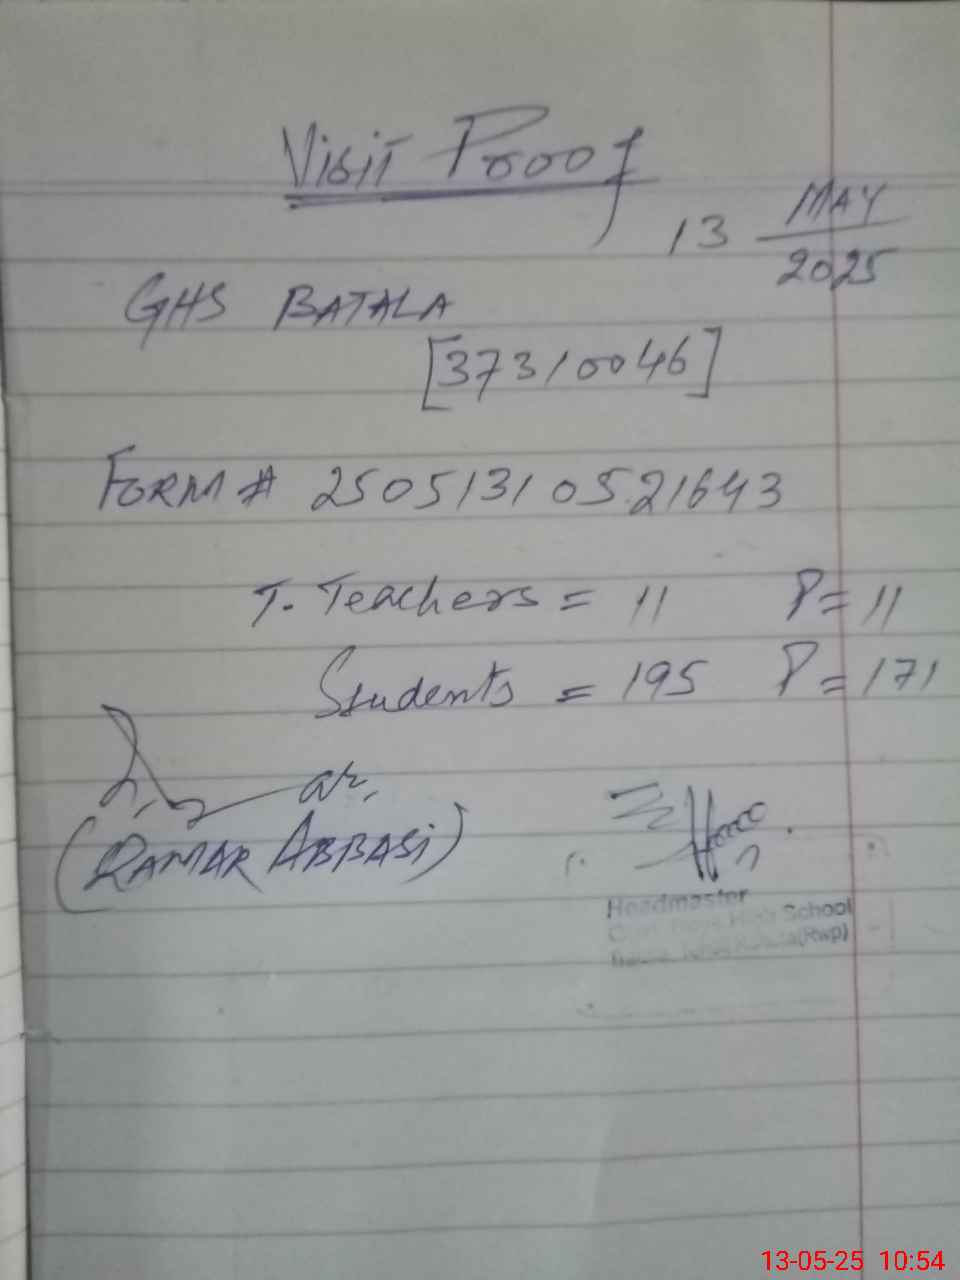 Visit Proof
13 MAY
2025
GHS BATALA
[37310046]
FORM # 25051310521643
T. Teachers = 11 P = 11
Students = 195 P = 171
(QAMAR ABBASI)
Headmaster
High School
(Rwp)
13-05-25 10:54